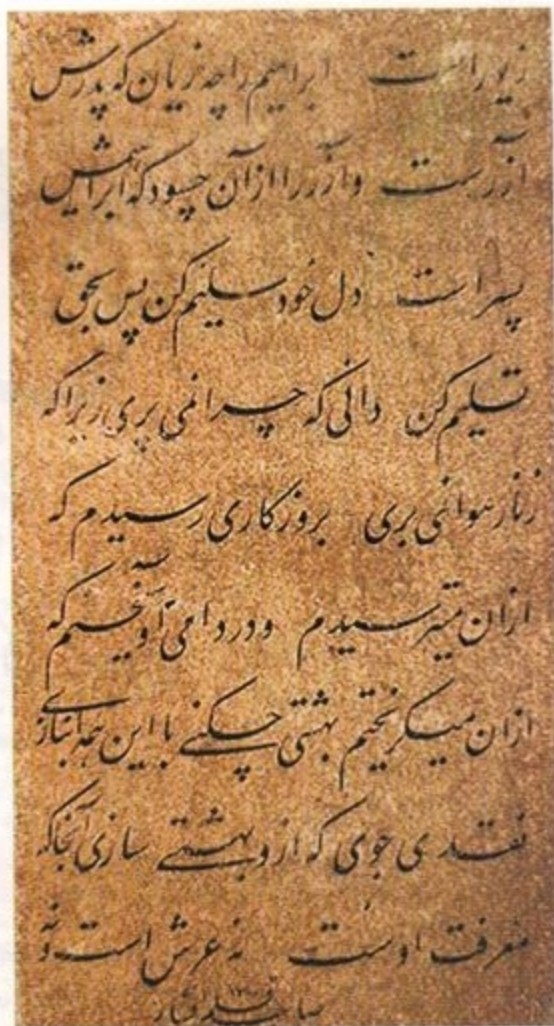 زیور است ابراهیم را چه زیان که پدرش
آزرست و آزر را ازان چه سود که ابراهیمش
پسر است دل خود سلیم کن پس بحق
تسلیم کن دانی که چرا نمی پری زیرا که
زنار هوا نمی بری بروزگاری رسیدم که
ازان میترسیدم و در دامی آویختم که
ازان میگریختم بهشتی چکنی با این همه انبازی
نقدی جوی که ازو بهشتی سازی آنجا که
معرفت اوست نه عرش است و نه